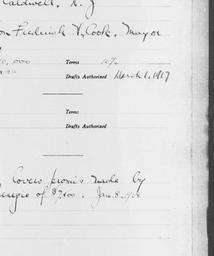 Caldwell, N. J.
on Frederick H. Cook, Mayor
0,000 Terms 10%
Drafts Authorized March 1, 1917
Terms:
Drafts Authorized
Covers promise made by
negie of $7,500. Jan. 8, 19